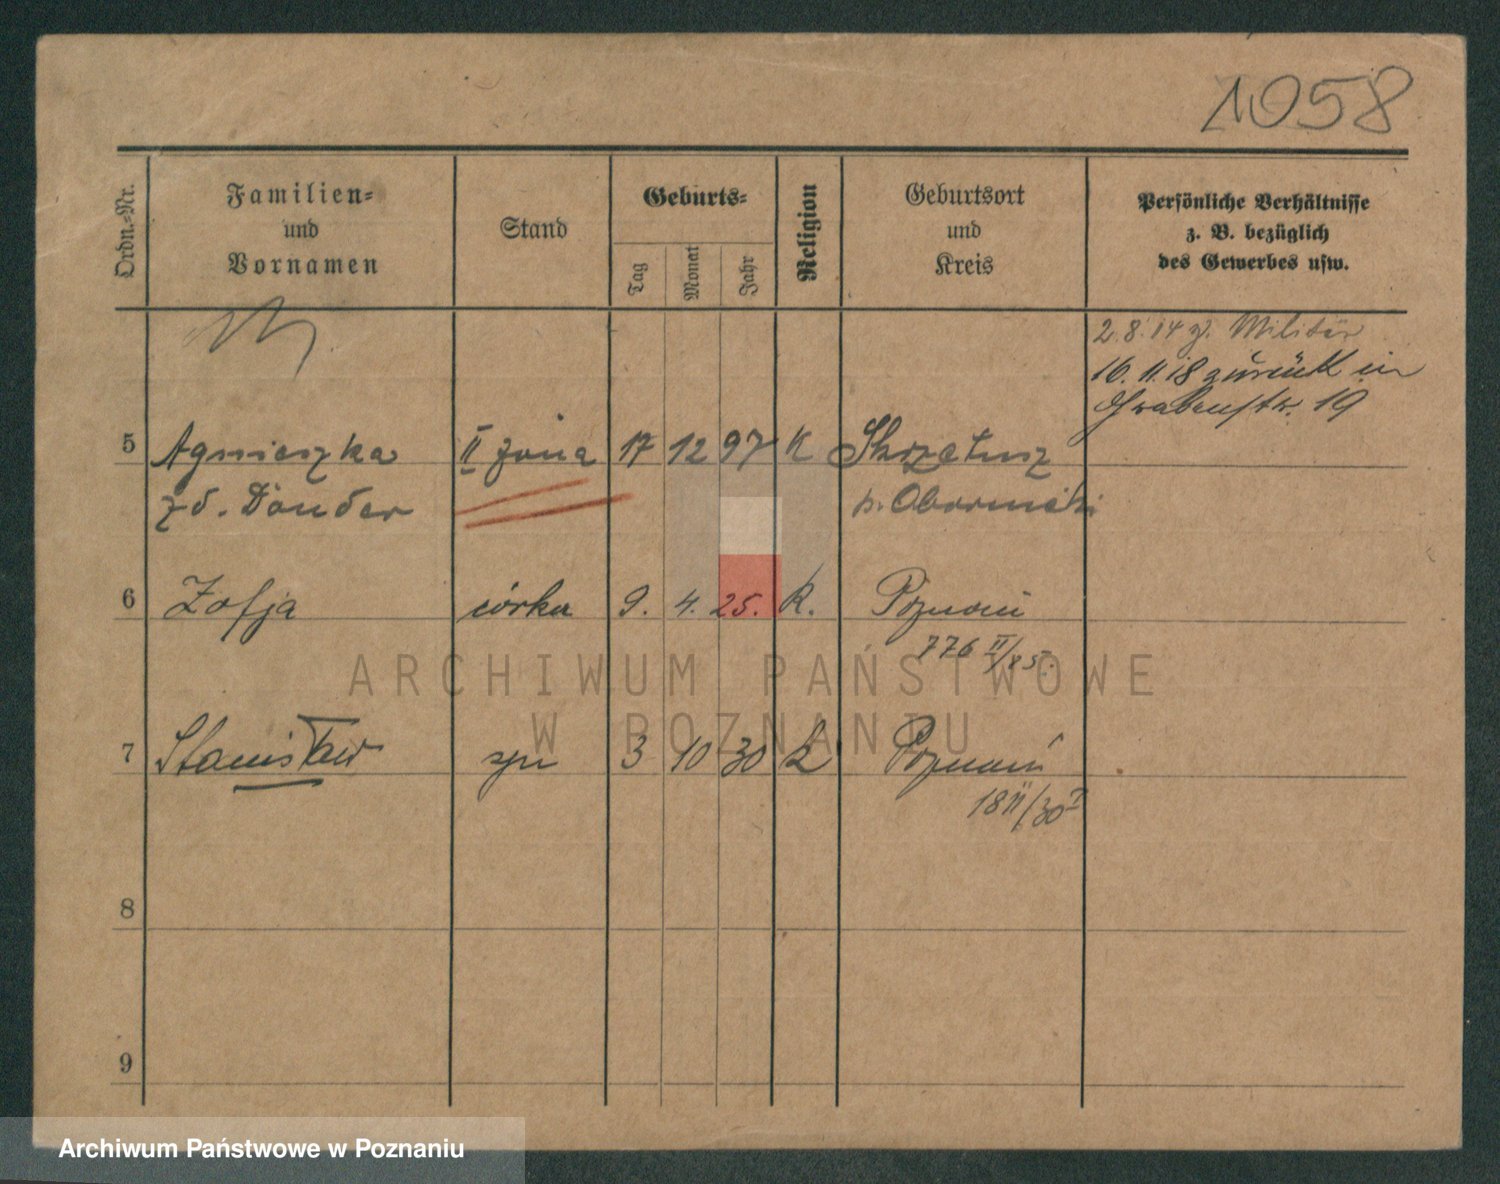 1058
Ordn.-Nr.
Familien-
und
Vornamen
Stand
Geburts-
Tag
Monat
Jahr
Religion
Geburtsort
und
Kreis
Persönliche Verhältnisse
z. B. bezüglich
des Gewerbes usw.
2.8.14 z. Militär
16.11.18 zurück in
Grabenstr. 19
5 Agnieszka II żona 17 12 97 K Skrzetusz
zd. Donder p. Obornicki
6 Zofja córka 9. 4. 25. K. Poznań
776 II/25.
7 Stanisław syn 3 10 30 k Poznań
18 II/30
8
9
ARCHIWUM PAŃSTWOWE
W POZNANIU
Archiwum Państwowe w Poznaniu